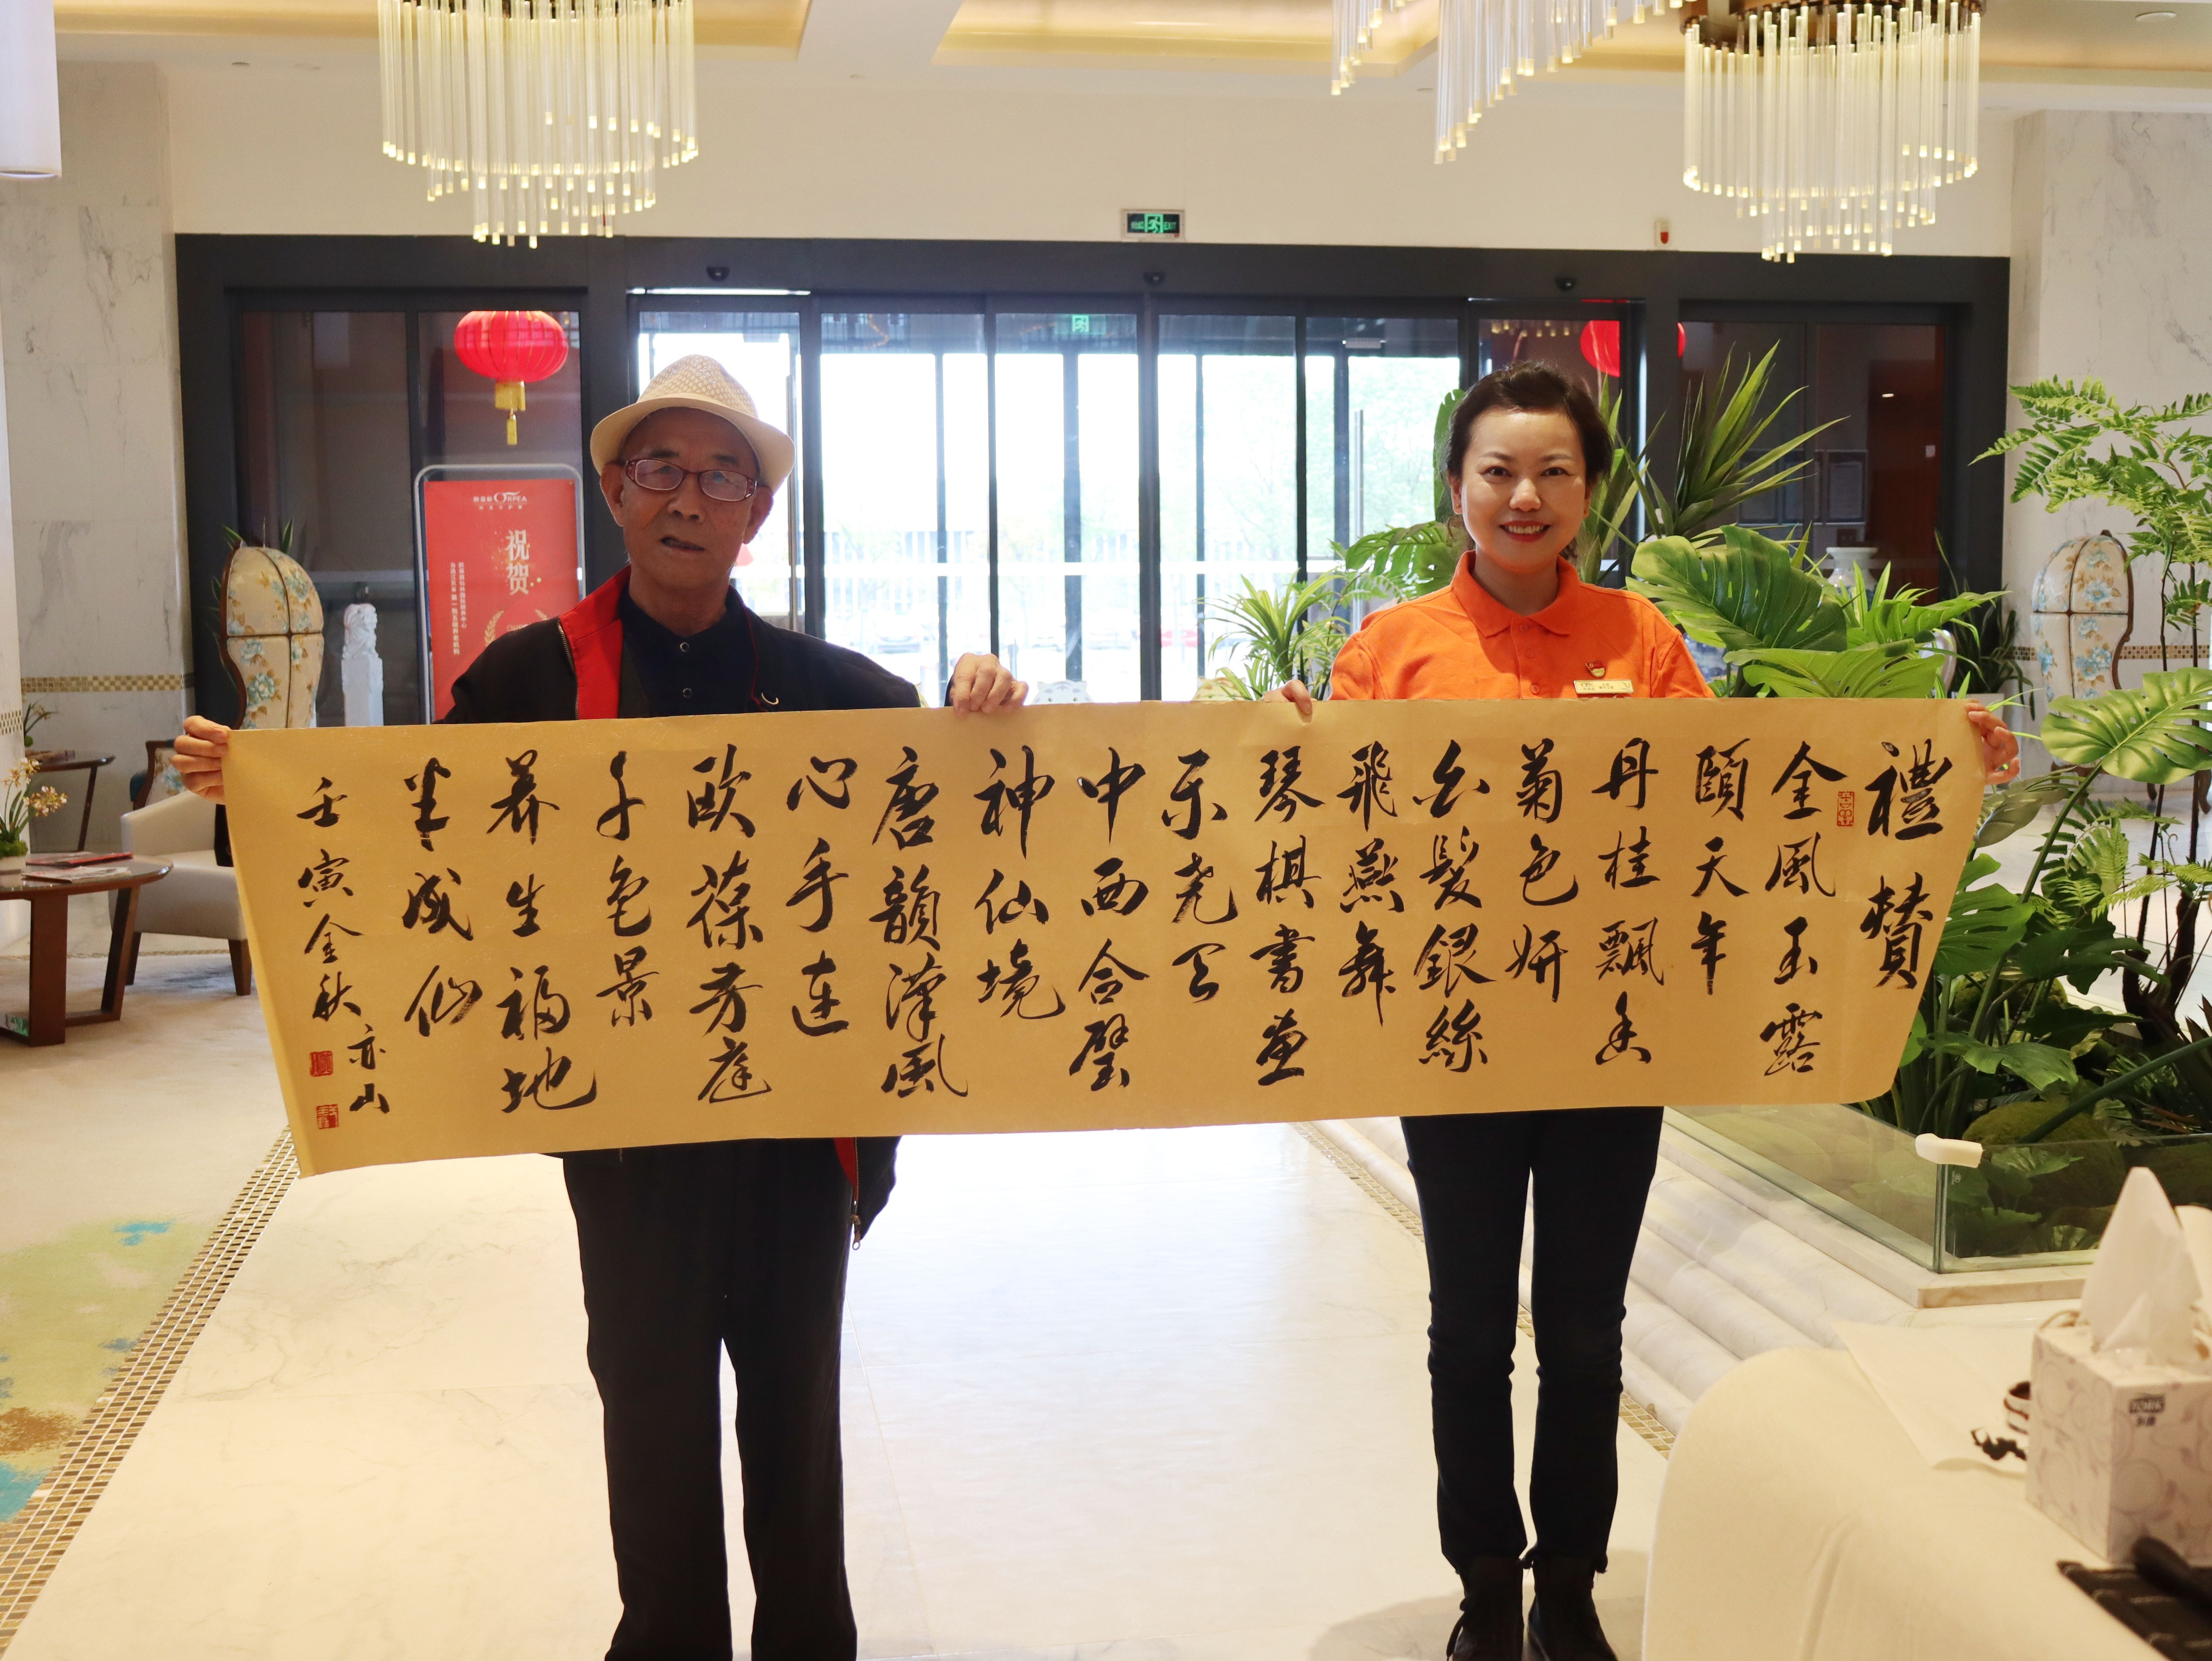 禮贊
金風玉露
頤天年
丹桂飄香
菊色妍
白髮銀絲
飛燕舞
琴棋書畫
乐尭天
中西合璧
神仙境
唐韻漢風
心手連
欧葆芳庭
千色景
养生福地
坐成仙
壬寅金秋
亦山
ORPEA
祝贺
EXIT
TORK